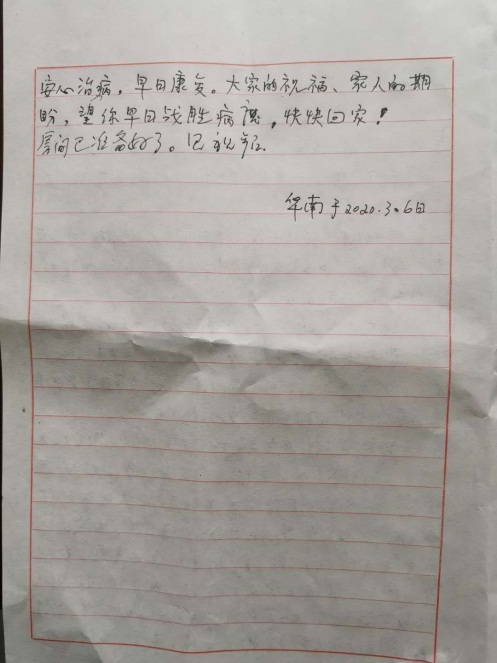 安心治病，早日康复。大家的祝福、家人的期
盼，望你早日战胜病魔，快快回家！
房间已准备好了。已
华南于2020.3.6日